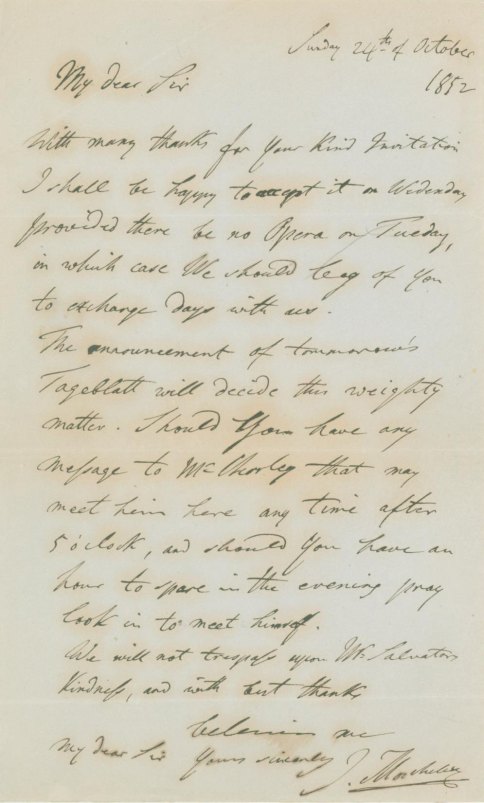 Sunday 24th of October
1852
My dear Sir
With many thanks for your Kind Invitation
I shall be happy to accept it on Wednesday
provided there be no Opera on Tuesday,
in which case We should beg of you
to exchange days with us.
The announcement of tommorow's
Tageblatt will decide this weighty
matter. Should You have any
message to Mr Chorley that may
meet him here any time after
5 o'clock, and should You have an
hour to spare in the evening pray
look in to meet himself.
We will not trespass upon Mr Salvators
Kindness, and with best thanks
believe me
My dear Sir Yours sincerely
J. Moscheles